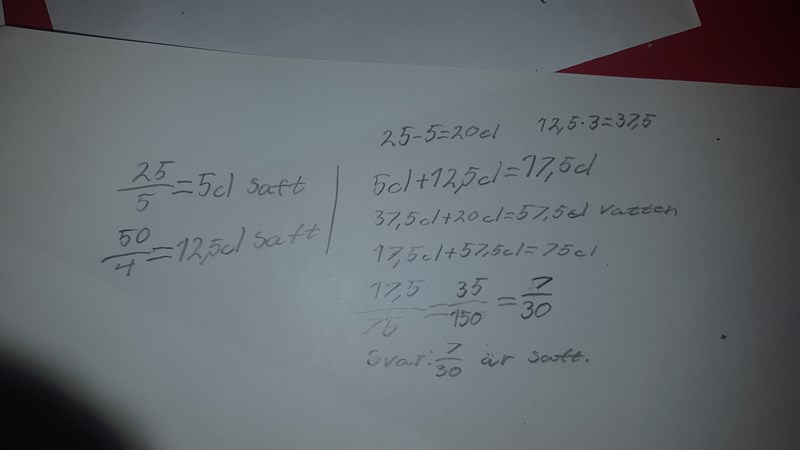 25/5=5cl saft
50/4=12,5cl saft
25-5=20cl 12,5·3=37,5
5cl+12,5cl=17,5cl
37,5cl+20cl=57,5cl vatten
17,5cl+57,5cl=75cl
17,5/75=35/150=7/30
Svar: 7/30 är saft.